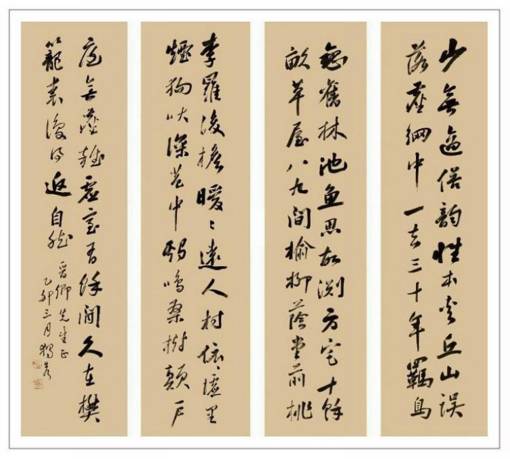 少無適俗韵性本愛丘山誤
落塵網中一去三十年羈鳥
戀舊林池魚思故淵方宅十餘
畝草屋八九間榆柳蔭堂前桃
李羅後檐曖〻遠人村依〻墟里
煙狗吠深巷中鷄鳴桑樹顛户
庭無塵雜虛室有餘閒久在樊
籠裏復得返自然
先生正
乙卯三月